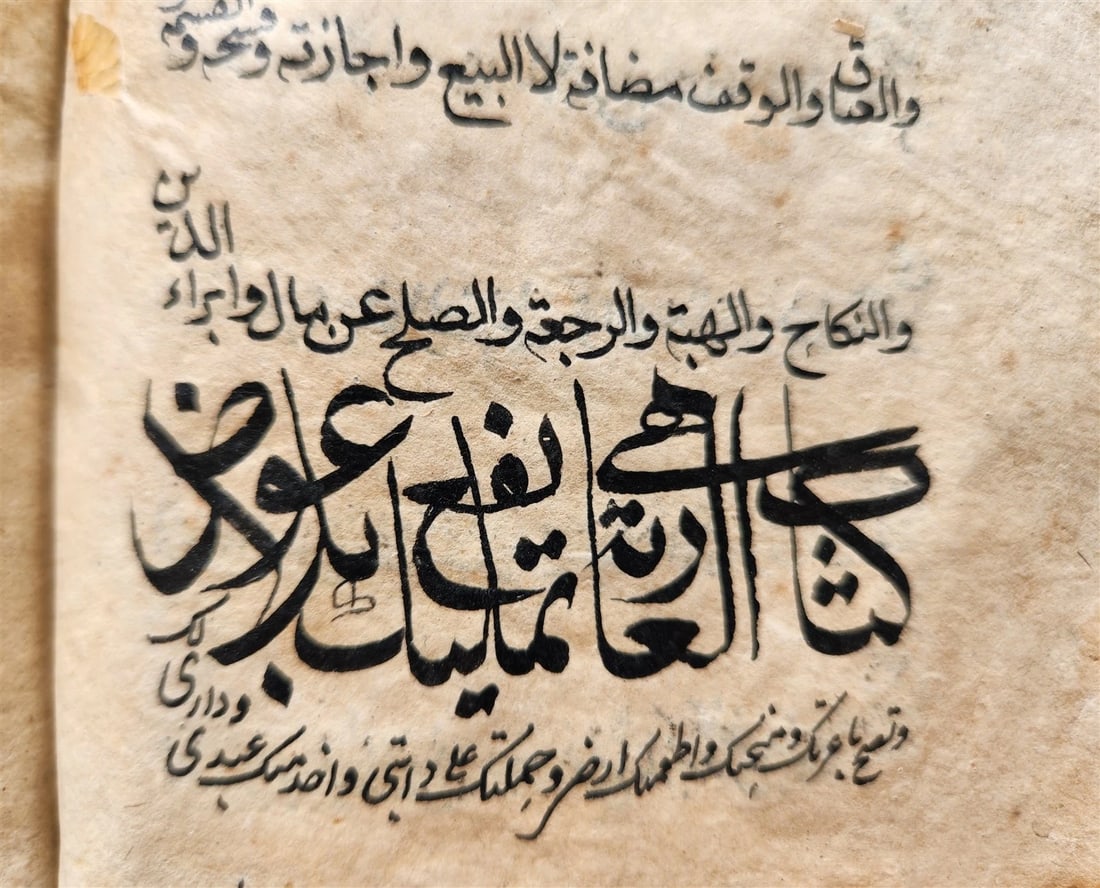 والقسمة
والعتاق والوقف مضافة لا البيع واجازته وفسخه و
والنكاح والهبة والرجعة والصلح عن مال وابراء الدين
كتاب العارية هي تمليك نفع بلا عوض
وتصح باعرتك ومنحتك واطعمتك ارضي وحملتك على دابتي واخدمتك عبدي
وداري لك